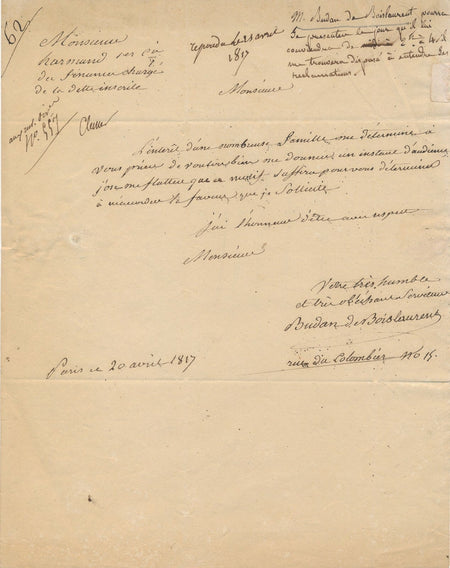 62/
Monsieur
harmand
du finance chargé
de la dette inscrite
répondu le avril
1817
M. Budan de Boislaurent pourra
se présenter le jour qu'il lui
conviendra de 2 h à 4, il
me trouvera disposé à entendre ses
réclamations.
No. 557
Monsieur
L'intérêt d'une nombreuse famille me détermine à
vous prier de vouloir bien me donner un instant d'audience,
j'ose me flatter que ce motif suffira pour vous déterminer
à m'accorder la faveur que je sollicite.
j'ai l'honneur d'être avec respect
Monsieur
Votre très humble
et très obéissant Serviteur
Budan de Boislaurent
rue du Colombier No 15.
Paris ce 20 avril 1817